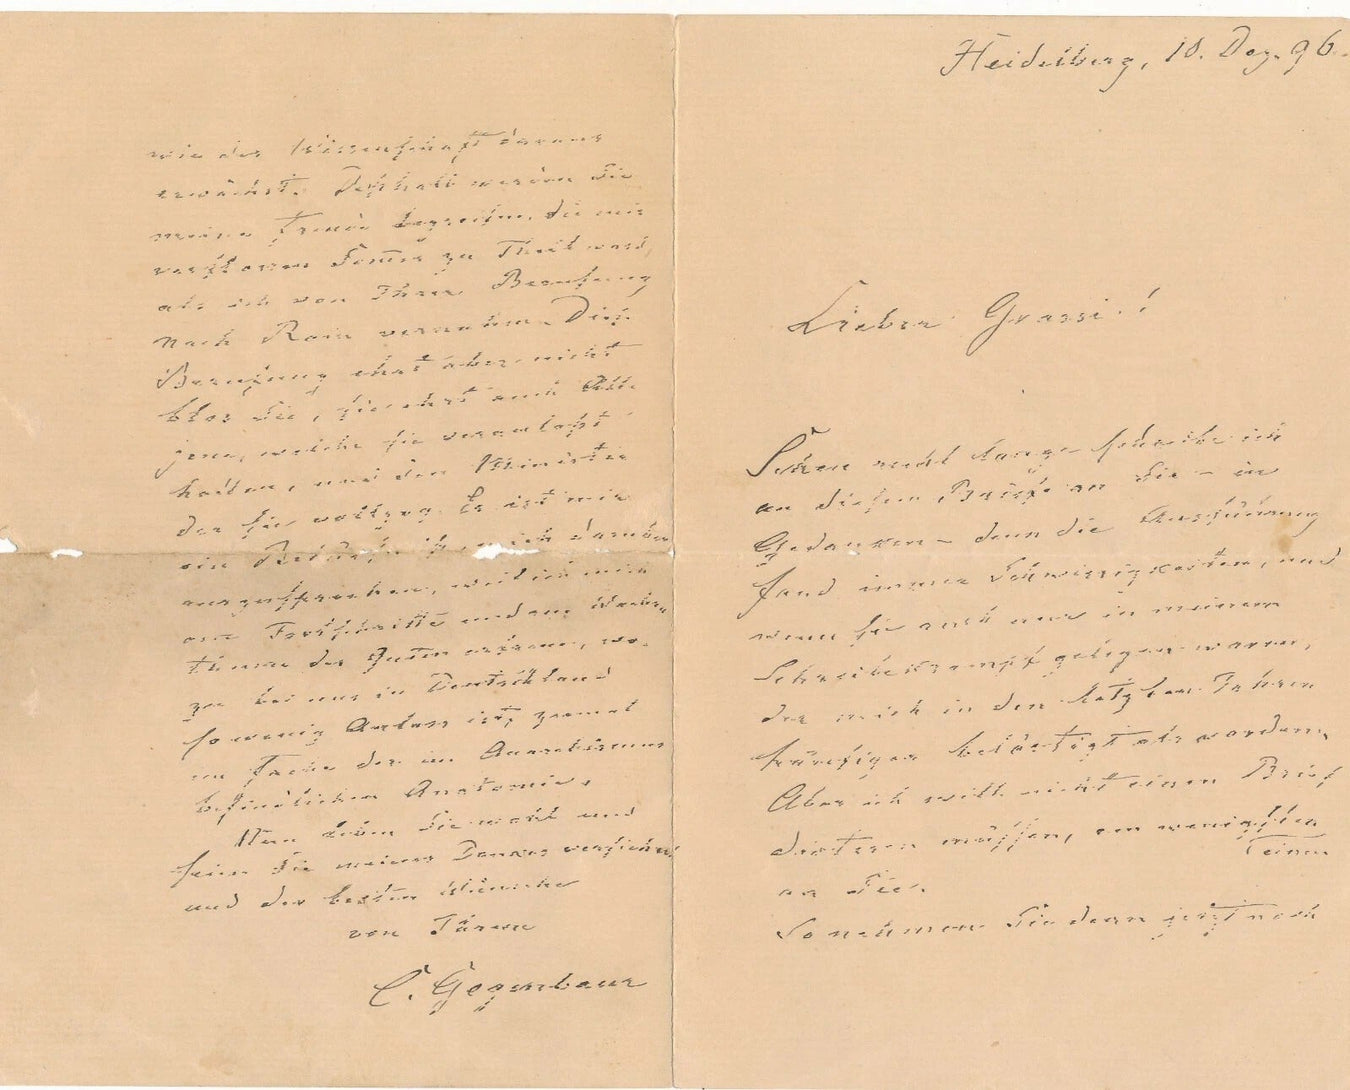 Heidelberg, 10. Dez. 96.
Lieber Grassi!
Schon recht lange schreibe ich
an diesem Briefe an Sie – in
Gedanken – denn die Ausführung
fand immer Schwierigkeiten, und
wenn sie auch nur in meinem
Schreibekrampf gelegen waren,
der mich in den letzten Jahren
häufiger belästigt als vordem.
Aber ich will nicht einen Brief
dictiren müssen, am wenigsten
einen
an Sie.
So nehmen Sie denn jetzt noch
wie der Wissenschaft daraus
erwächst. Deßhalb werden Sie
meine Freude begreifen, die mir
verflossenen Sommer zu Theil ward,
als ich von Ihrer Berufung
nach Rom vernahm. Diese
Berufung ehrt aber nicht
blos Sie, sie ehrt auch Alle
jene, welche sie veranlaßt
haben, und den Minister
der sie vollzog. Es ist mir
ein Bedürfniß mich darüber
auszusprechen, weil ich mich
am Fortschritte und am Wachs-
thume des Guten erfreue, wo-
zu bei uns in Deutschland
so wenig Anlass ist, zumal
im Fache der im Marasmus
befindlichen Anatomie.
Nun leben Sie wohl und
seien Sie meines Dankes versichert
und der besten Wünsche
von Ihrem
C. Gegenbaur